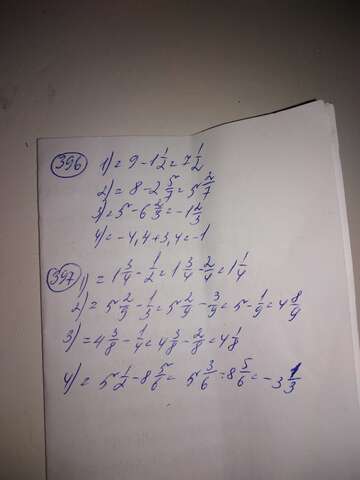 396 1) = 9 - 1 1/2 = 7 1/2
2) = 8 - 2 5/7 = 5 2/7
3) = 5 - 6 2/3 = -1 2/3
4) = -4,4 + 3,4 = -1
397 1) = 1 3/4 - 1/2 = 1 3/4 - 2/4 = 1 1/4
2) = 5 2/9 - 1/3 = 5 2/9 - 3/9 = 5 - 1/9 = 4 8/9
3) = 4 3/8 - 1/4 = 4 3/8 - 2/8 = 4 1/8
4) = 5 1/2 - 8 5/6 = 5 3/6 - 8 5/6 = -3 1/3